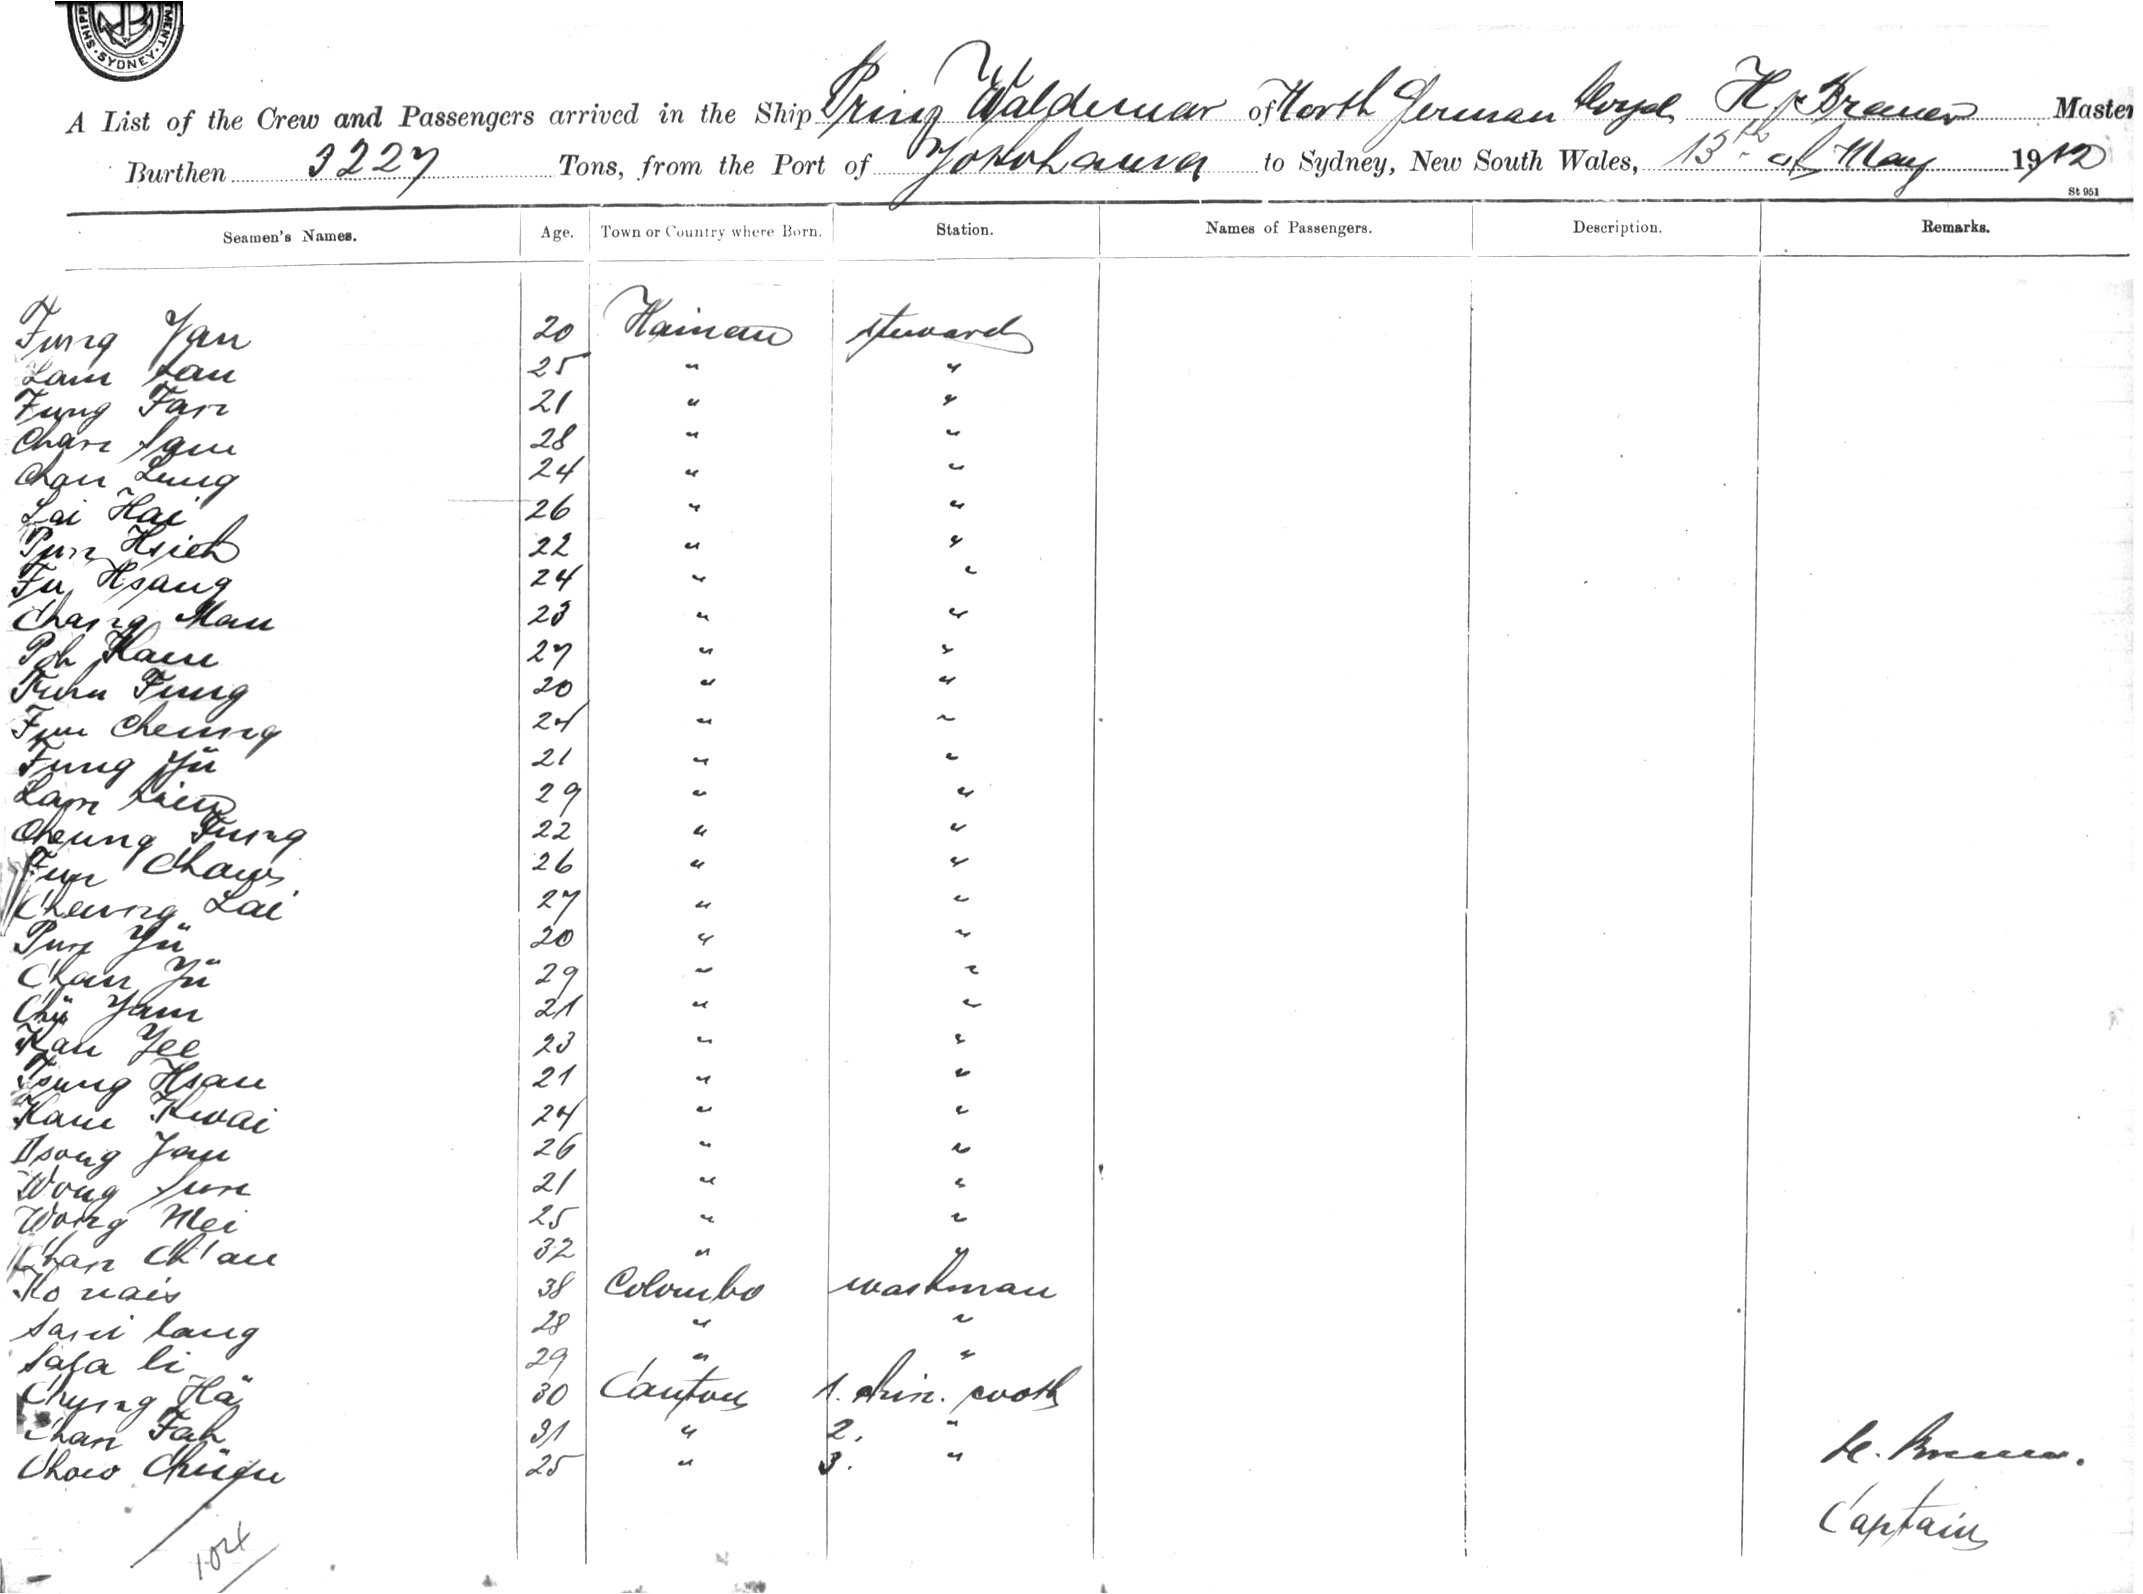 SHIPP
TMENT. SYDNEY
A List of the Crew and Passengers arrived in the Ship Prinz Waldemar of North German Lloyd, H. Bremer Master
Burthen 3227 Tons, from the Port of Yokohama to Sydney, New South Wales, 13th of May 1912
St 951
Seamen's Names. Age. Town or Country where Born. Station. Names of Passengers. Description. Remarks.
Fung Yan 20 Hainan steward
Lam San 25 " "
Fung Fan 21 " "
Chan Sam 28 " "
Chan Lung 24 " "
Lai Hai 26 " "
Pun Hsieh 22 " "
Fu Hsang 24 " "
Chang Man 23 " "
Poh Kam 27 " "
Fung 20 " "
Fun Cheung 24 " "
Fung Yü 21 " "
Lam 29 " "
Cheung Fung 22 " "
Fun Chaw 26 " "
Cheung Lai 27 " "
Pun Yü 20 " "
Chan Yü 29 " "
Chü Yam 21 " "
Kan Yee 23 " "
Tsung Hsan 21 " "
Kam Kwai 24 " "
Tsong Yan 26 " "
Wong Sun 21 " "
Wong Mei 25 " "
Chan Ch'an 32 " "
Ko nais 38 Colombo washman
Sani lang 28 " "
li 29 " "
Chung Hä 30 Canton 1. chin. cook
Chan Fah 31 " 2. "
Chow 25 " 3. "
H. Bremer.
Captain
104